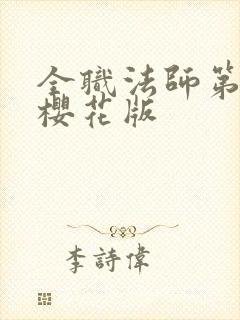 全職法師第
櫻花版
李詩偉